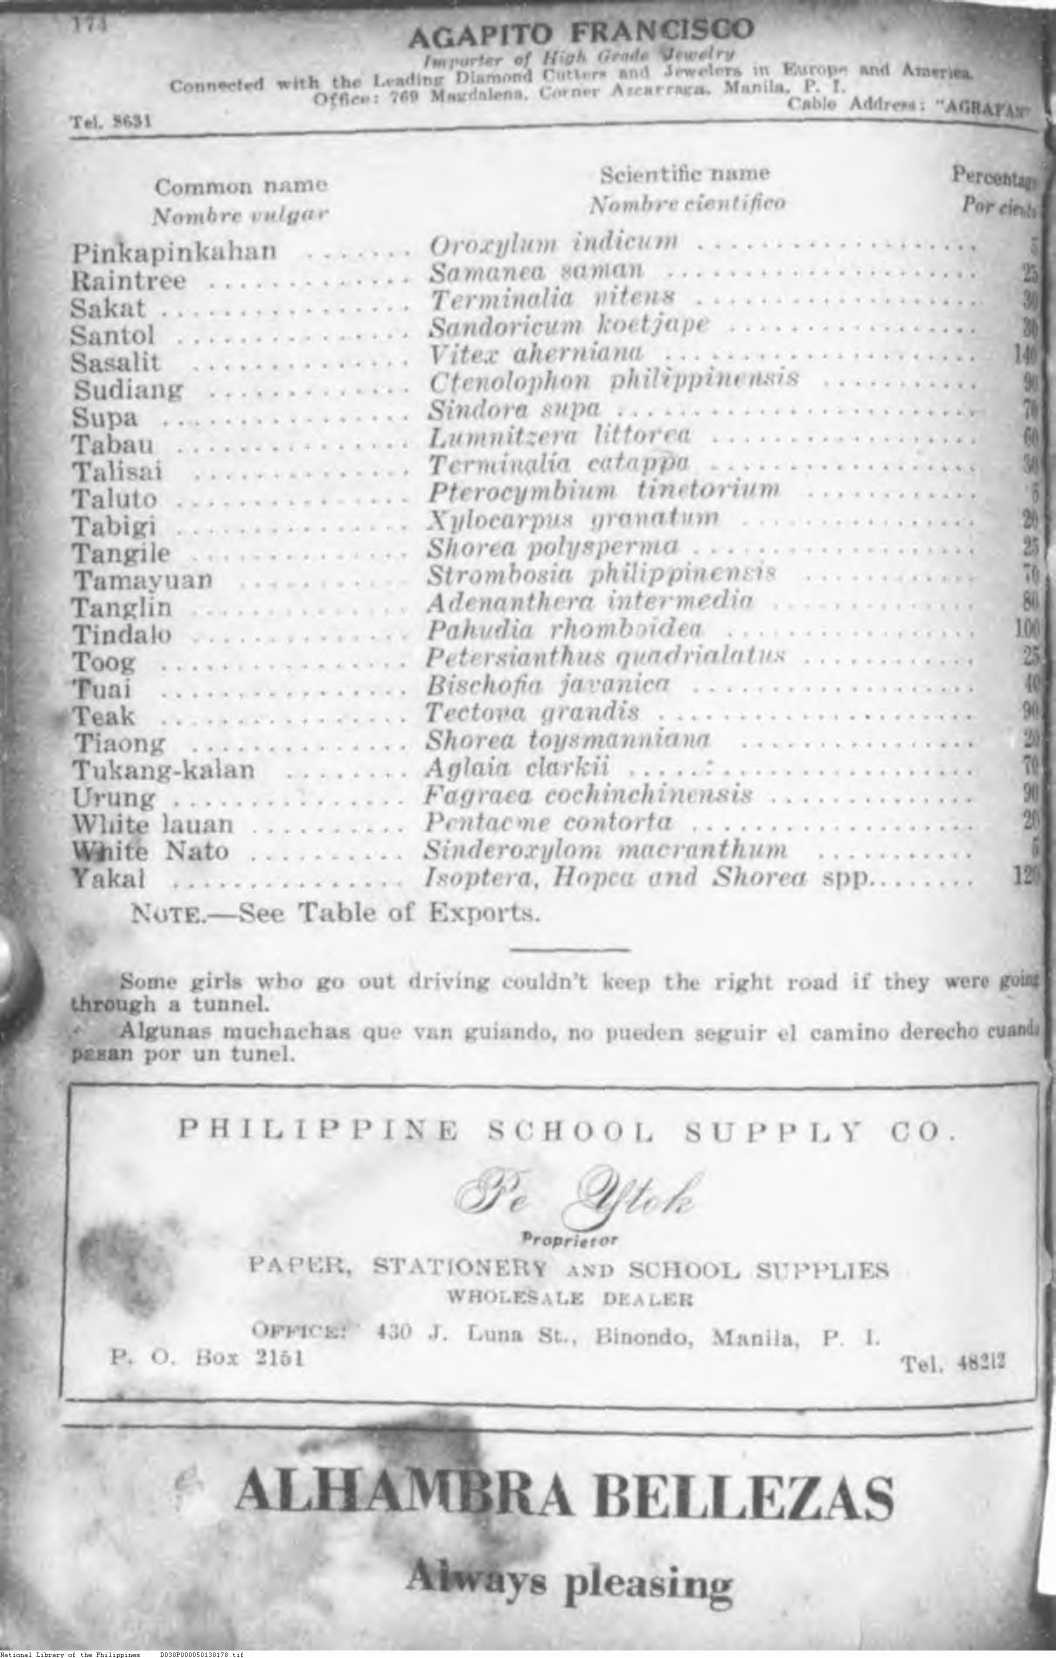 174
AGAPITO FRANCISCO
Importer of High Grade Jewelry
Connected with the Leading Diamond Cutters and Jewelers in Europe and America.
Office: 769 Magdalena, Corner Azcarraga, Manila, P. I.
Tel. 8631 Cable Address: "AGRAFAN"
Common name Scientific name Percentage
Nombre vulgar Nombre cientifico Por ciento
Pinkapinkahan ....... Oroxylum indicum ............... 5
Raintree ............ Samanea saman ................ 25
Sakat .............. Terminalia nitens ............... 30
Santol ............. Sandoricum koetjape ............. 30
Sasalit ............ Vitex aherniana ................ 140
Sudiang ........... Ctenolophon philippinensis .......... 90
Supa .............. Sindora supa ................... 70
Tabau ............. Lumnitzera littorea .............. 60
Talisai ............ Terminalia catappa .............. 30
Taluto ............. Pterocymbium tinctorium ........... 5
Tabigi ............. Xylocarpus granatum ............. 20
Tangile ............ Shorea polysperma ............... 25
Tamayuan ......... Strombosia philippinensis .......... 70
Tanglin ............ Adenanthera intermedia ........... 80
Tindalo ............ Pahudia rhomboidea ............. 100
Toog .............. Petersianthus quadrialatus .......... 25
Tuai .............. Bischofia javanica ............... 40
Teak .............. Tectova grandis ................. 90
Tiaong ............ Shorea toysmanniana ............. 20
Tukang-kalan ....... Aglaia clarkii ................... 70
Urung ............. Fagraea cochinchinensis ........... 90
White lauan ......... Pentacme contorta ............... 20
White Nato ......... Sinderoxylom macranthum .......... 5
Yakal ............. Isoptera, Hopea and Shorea spp........ 120
NOTE.—See Table of Exports.
Some girls who go out driving couldn't keep the right road if they were going
through a tunnel.
Algunas muchachas que van guiando, no pueden seguir el camino derecho cuando
pasan por un tunel.
PHILIPPINE SCHOOL SUPPLY CO.
Pe Ytok
Proprietor
PAPER, STATIONERY AND SCHOOL SUPPLIES
WHOLESALE DEALER
OFFICE: 430 J. Luna St., Binondo, Manila, P. I.
P. O. Box 2151 Tel. 48212
ALHAMBRA BELLEZAS
Always pleasing
National Library of the Philippines D038P000050138178.tif